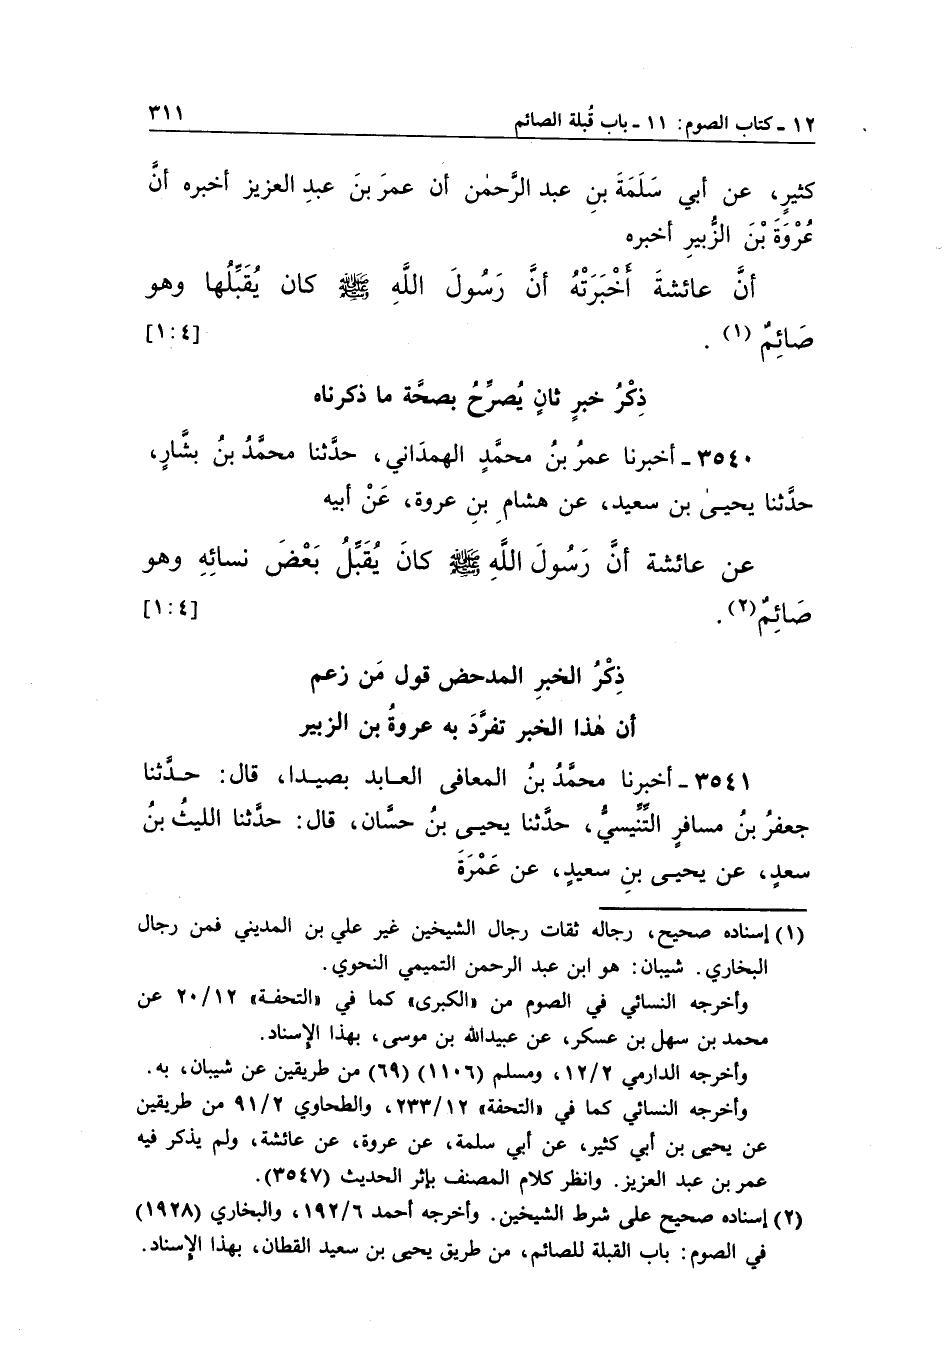 ١٢ - كتاب الصوم: ١١ - باب قُبلة الصائم ٣١١
كثيرٍ، عن أبي سَلَمَةَ بنِ عبد الرَّحمٰن أن عمرَ بنَ عبدِ العزيز أخبره أنَّ
عُرْوَةَ بْنَ الزُّبيرِ أخبره
أنَّ عائشةَ أَخْبَرَتْهُ أنَّ رَسُولَ اللَّهِ ﷺ كان يُقَبِّلُها وهو
صَائِمٌ (١) . [٤ : ١]
ذِكْرُ خبرٍ ثانٍ يُصرِّحُ بصحَّة ما ذكرناه
٣٥٤٠ - أخبرنا عمرُ بنُ محمَّدٍ الهمدَاني، حدَّثنا محمَّدُ بنُ بشَّارٍ،
حدَّثنا يحيىٰ بن سعيد، عن هشامِ بنِ عروة، عَنْ أبيه
عن عائشة أنَّ رَسُولَ اللَّهِ ﷺ كانَ يُقَبِّلُ بَعْضَ نسائِهِ وهو
صَائِمٌ(٢) . [٤ : ١]
ذِكْرُ الخبرِ المدحض قول مَن زعم
أن هٰذا الخبر تفرَّدَ به عروةُ بن الزبير
٣٥٤١ - أخبرنا محمَّدُ بنُ المعافى العابد بصيدا، قال: حدَّثنا
جعفرُ بنُ مسافرٍ التِّنِّيسيُّ، حدَّثنا يحيى بنُ حسَّان، قال: حدَّثنا الليثُ بنُ
سعدٍ، عن يحيى بنِ سعيدٍ، عن عَمْرَةَ
(١) إسناده صحيح، رجاله ثقات رجال الشيخين غير علي بن المديني فمن رجال
البخاري. شيبان: هو ابن عبد الرحمن التميمي النحوي.
وأخرجه النسائي في الصوم من «الكبرى» كما في «التحفة» ٢٠/١٢ عن
محمد بن سهل بن عسكر، عن عبيدالله بن موسى، بهذا الإسناد.
وأخرجه الدارمي ١٢/٢، ومسلم (١١٠٦) (٦٩) من طريقين عن شيبان، به.
وأخرجه النسائي كما في «التحفة» ٢٣٣/١٢، والطحاوي ٩١/٢ من طريقين
عن يحيى بن أبي كثير، عن أبي سلمة، عن عروة، عن عائشة، ولم يذكر فيه
عمر بن عبد العزيز. وانظر كلام المصنف بإثر الحديث (٣٥٤٧).
(٢) إسناده صحيح على شرط الشيخين. وأخرجه أحمد ١٩٢/٦، والبخاري (١٩٢٨)
في الصوم: باب القبلة للصائم، من طريق يحيى بن سعيد القطان، بهذا الإسناد.